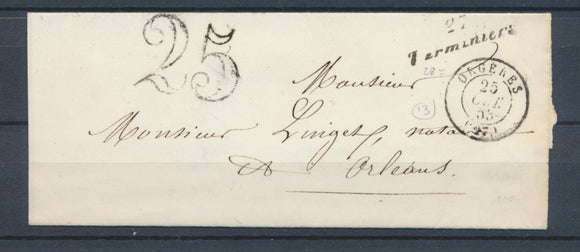 27
Terminiers
25
28=
Monsieur
ORGÈRES
25
OCT.
53
(27)
13
Monsieur Linget, notaire
à Orléans.